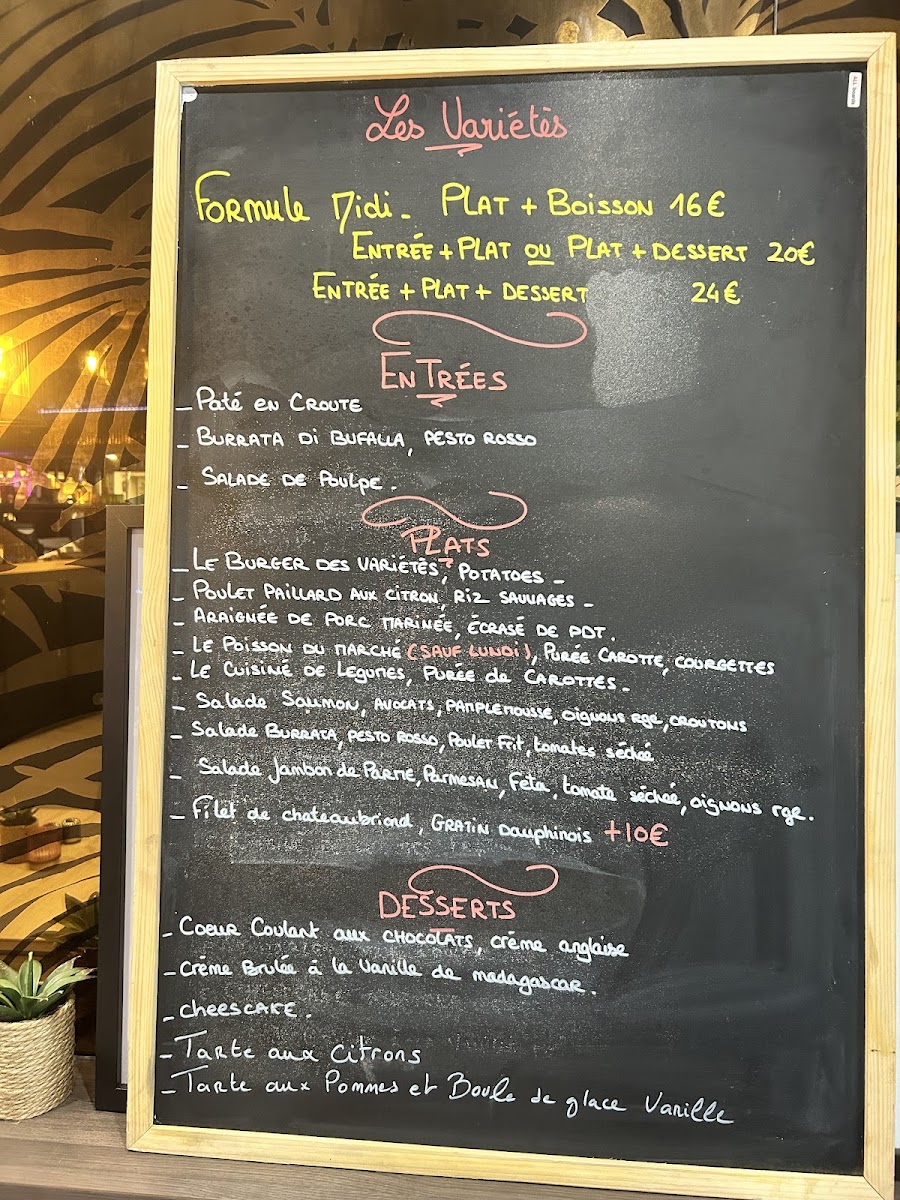 Les Variétés
Formule Midi - PLAT + BOISSON 16€
ENTRÉE + PLAT OU PLAT + DESSERT 20€
ENTRÉE + PLAT + DESSERT 24€
ENTRÉES
- Paté en CROUTE
- BURRATA DI BUFALLA, PESTO ROSSO
- SALADE DE POULPE.
PLATS
- LE BURGER DES VARIÉTÉS, POTATOES -
- POULET PAILLARD AUX CITRON, RIZ SAUVAGES -
- ARAIGNÉE DE PORC MARINÉE, ÉCRASÉ DE PDT.
- LE POISSON DU MARCHÉ (SAUF LUNDI), PURÉE CAROTTE, COURGETTES
- LE CUISINÉ DE LÉGUMES, PURÉE de CAROTTES -
- Salade Saumon, AVOCATS, PAMPLEMOUSSE, oignons rge, CROUTONS
- Salade BURRATA, PESTO ROSSO, Poulet Frit, tomates séchée
- Salade Jambon de PARME, Parmesan, Feta, tomate séchée, oignons rge.
- Filet de chateaubriand, GRATIN Dauphinois +10€
DESSERTS
- Coeur Coulant aux CHOCOLATS, crème anglaise
- Crème Brulée à la Vanille de madagascar.
- CHEESCAKE.
- Tarte aux Citrons
- Tarte aux Pommes et Boule de glace Vanille